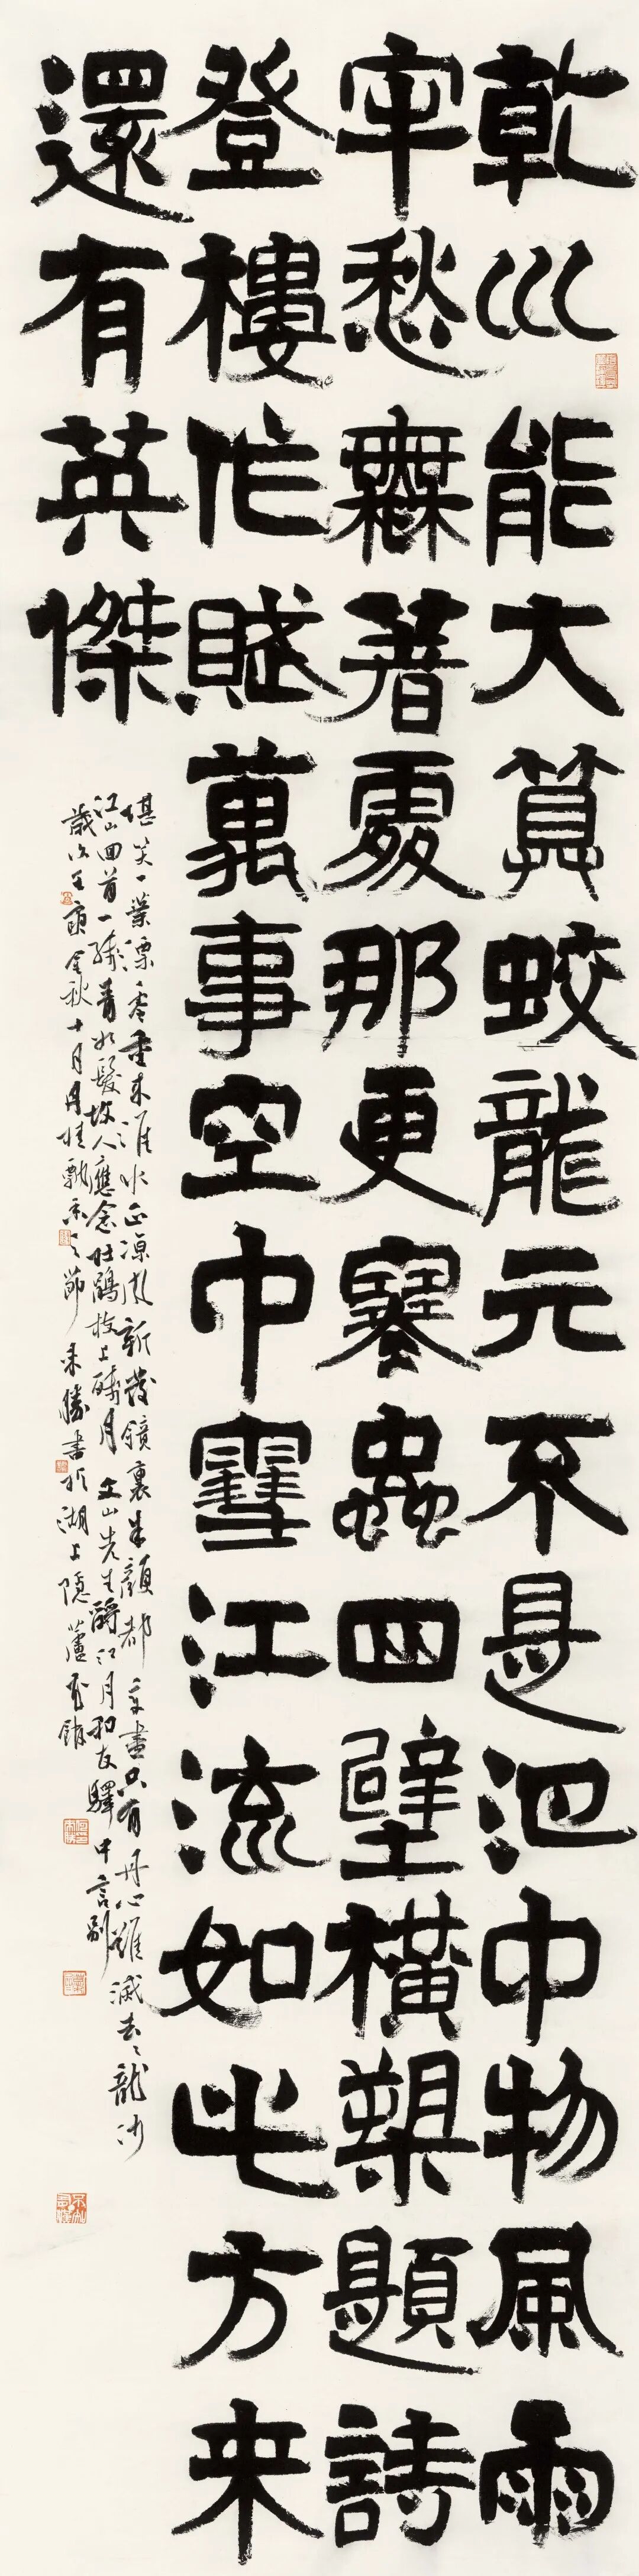 乾巛能大算蛟龍元不是池中物風雨
牢愁無著處那更寒蟲四壁橫槊題詩
登樓作賦萬事空中雪江流如此方来
還有英傑
堪笑一葉漂零重来淮水正涼風新發鏡裏朱顏都變盡只有丹心難滅去〻龍沙
江山回首一線青如髮故人應念杜鵑枝上殘月 文山先生酹江月和友驛中言别
歲次壬寅金秋十月丹桂飄香之節 来勝書於湖上隱蘆